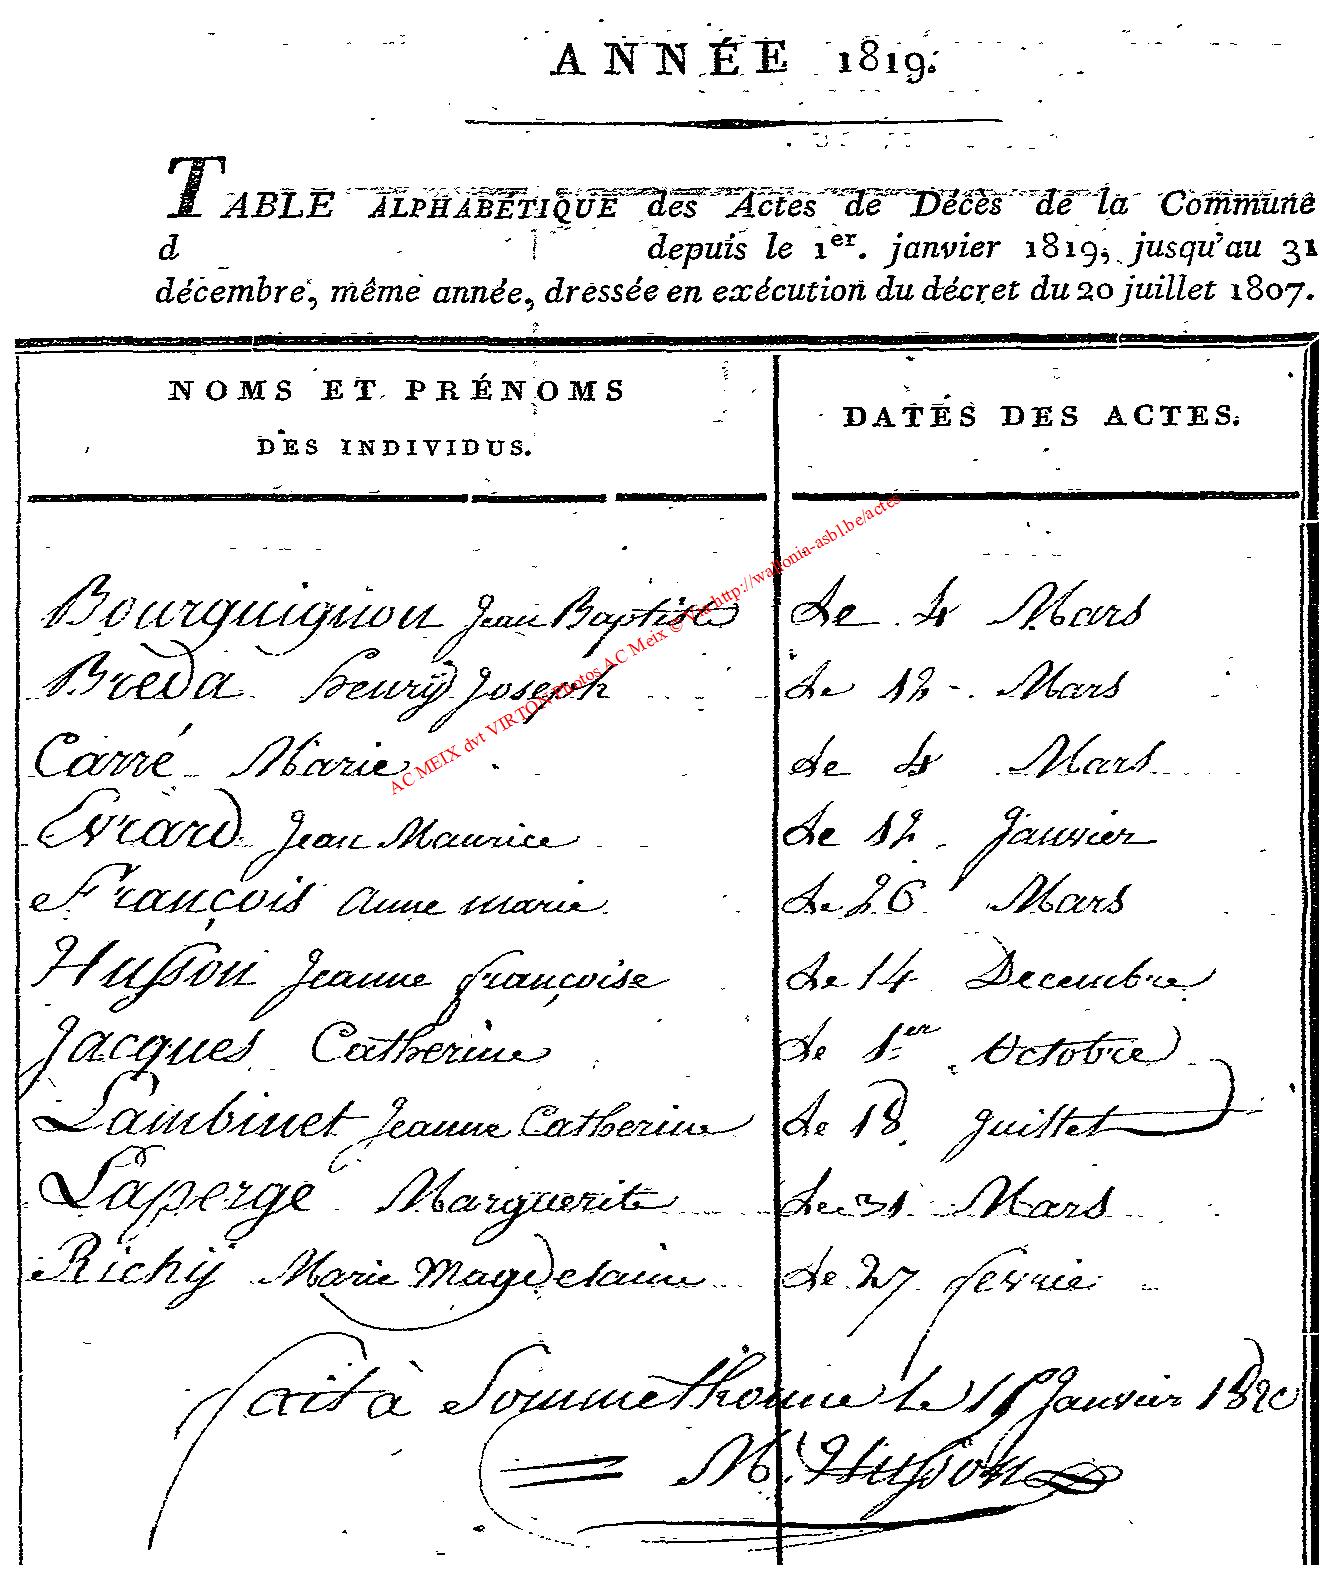 ANNÉE 1819.
TABLE ALPHABÉTIQUE des Actes de Décès de la Commune
d depuis le 1er. janvier 1819, jusqu'au 31
décembre, même année, dressée en exécution du décret du 20 juillet 1807.
NOMS ET PRÉNOMS
DES INDIVIDUS.
DATES DES ACTES.
Bourguignon Jean Baptiste Le 4 Mars
Breda henrÿ Joseph Le 12 Mars
Carré Marie Le 4 Mars
Evrard Jean Maurice Le 12 Janvier
François anne marie Le 26 Mars
Husson Jeanne françoise Le 14 Decembre
Jacques Catherine Le 1er Octobre
Lambinet Jeanne Catherine Le 18 Juillet
Laperge Marguerite Le 31 Mars
Richÿ Marie Magdelaine Le 27 fevrie
fait à Sommethonne le Janvier 1820
M. Husson
AC MEIX dvt VIRTON Photos AC Meix © http://wallonia-asbl.be/actes